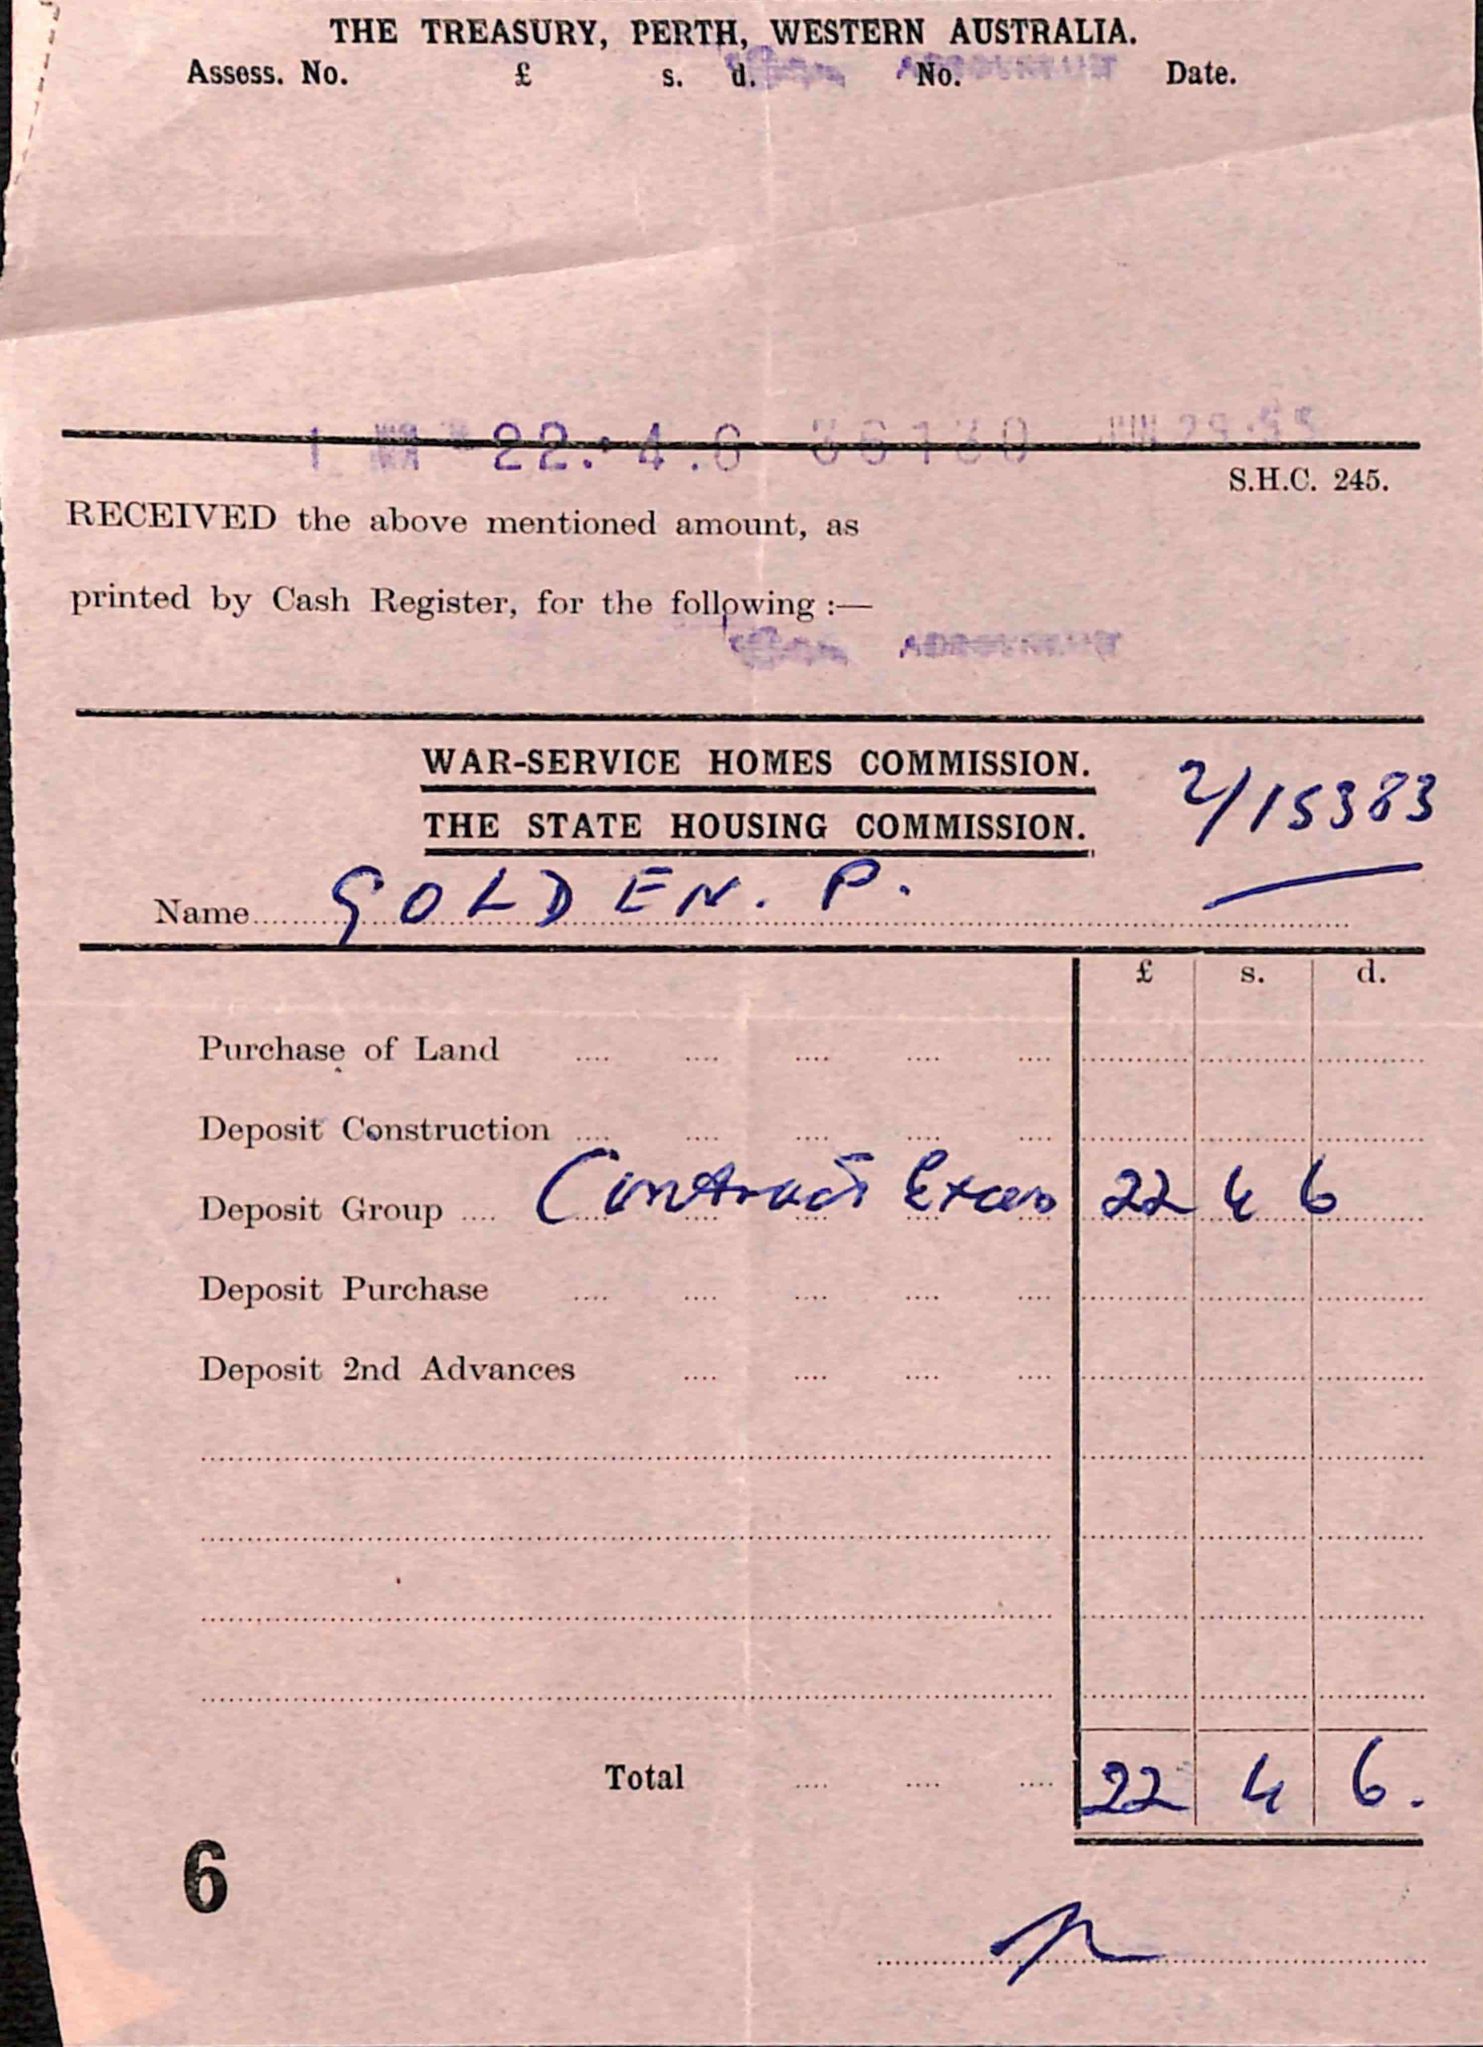 THE TREASURY, PERTH, WESTERN AUSTRALIA.
Assess. No. £ s. d. No. Date.
22.-4.6 36130 JUN 29.55
S.H.C. 245.
RECEIVED the above mentioned amount, as
printed by Cash Register, for the following :—
WAR-SERVICE HOMES COMMISSION.
2/15383
THE STATE HOUSING COMMISSION.
Name GOLDEN. P.
£ s. d.
Purchase of Land
Deposit Construction
Deposit Group Contract Exces 22 4 6
Deposit Purchase
Deposit 2nd Advances
Total 22 4 6.
6